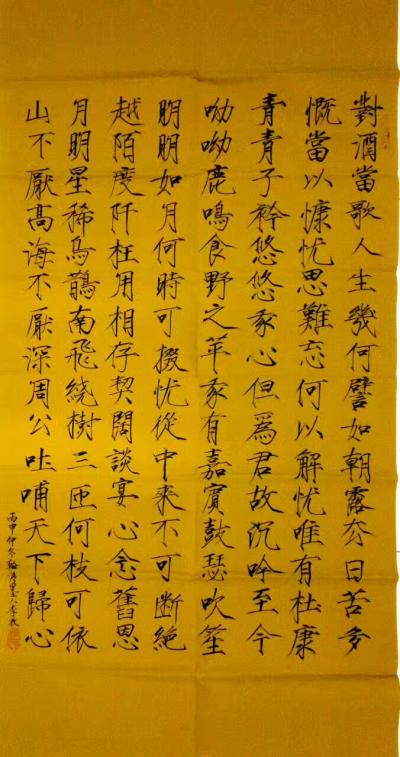 對酒當歌人生幾何譬如朝露去日苦多
慨當以慷忧思難忘何以解忧唯有杜康
青青子衿悠悠我心但爲君故沉吟至今
呦呦鹿鳴食野之苹我有嘉賓鼓瑟吹笙
明明如月何時可掇忧從中来不可断絶
越陌度阡枉用相存契闊談宴心念舊恩
月明星稀烏鵲南飛繞樹三匝何枝可依
山不厭高海不厭深周公吐哺天下歸心
丙申仲冬